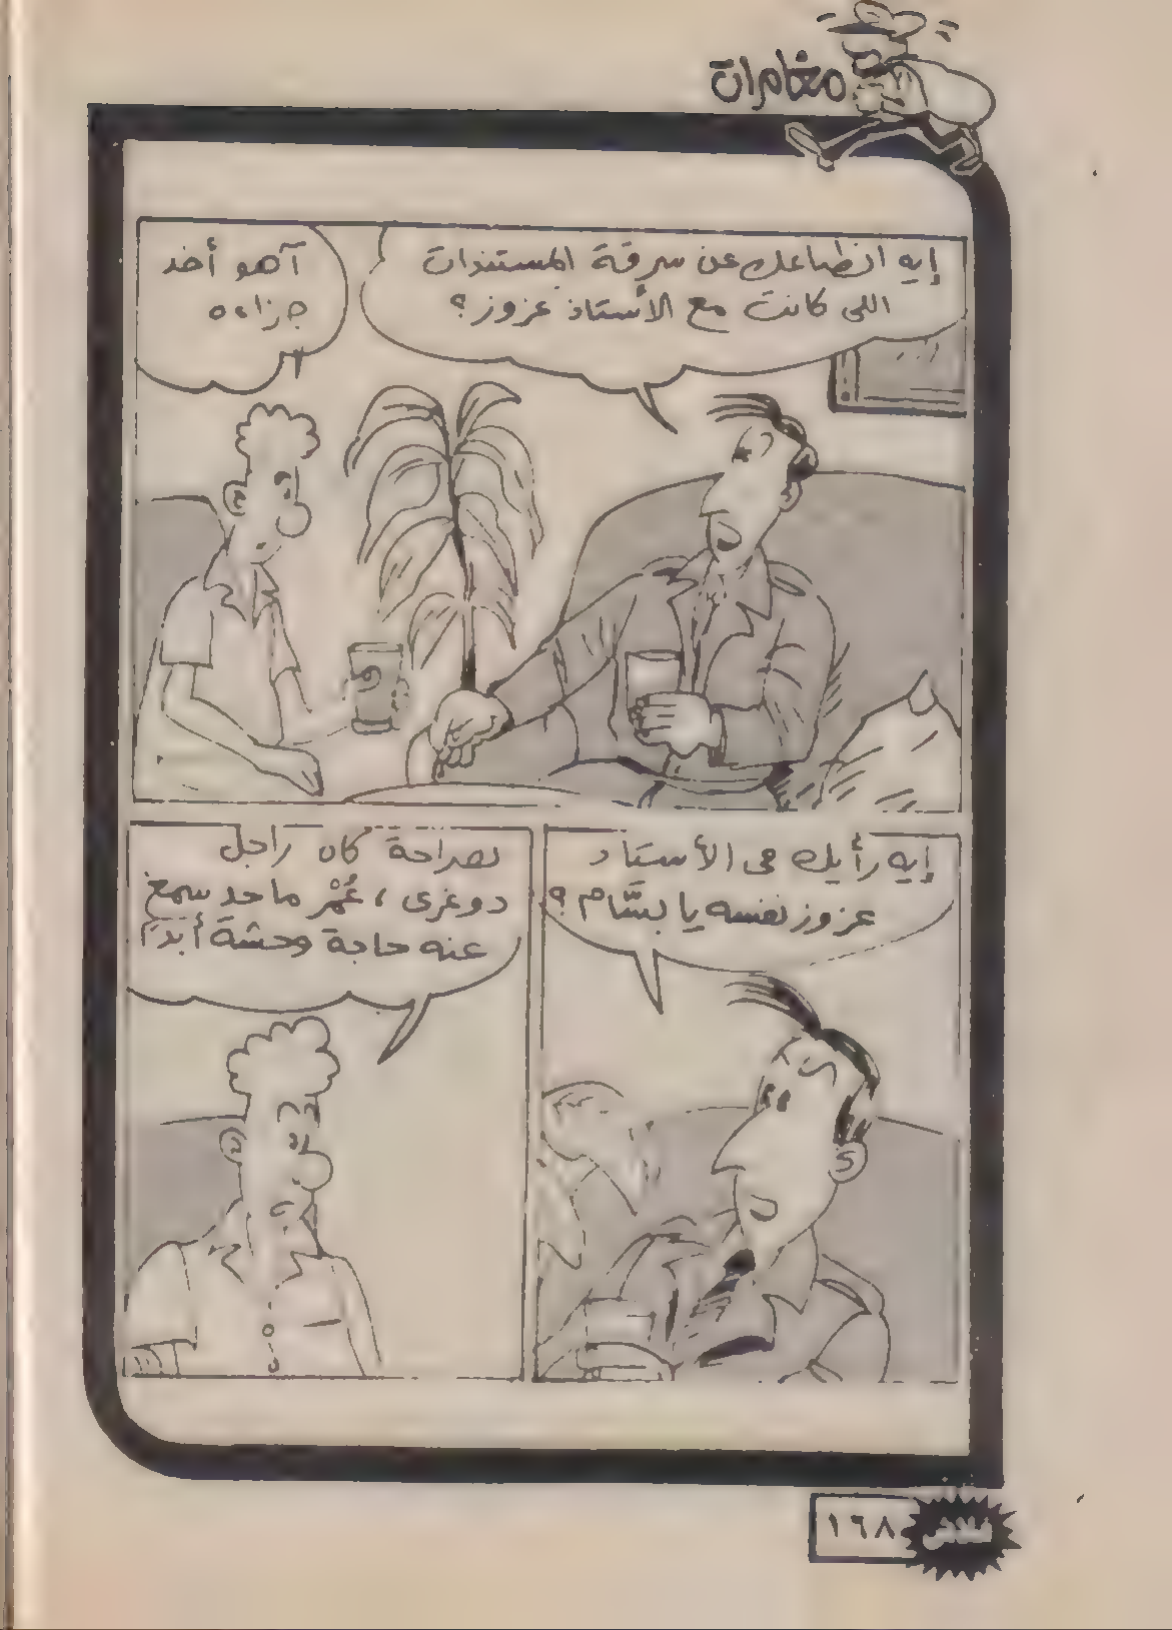 مغامرات
إيه انطباعك عن سرقة المستندات
اللى كانت مع الأستاذ عزوز؟
آهو أخد
جزاءه
إيه رأيك فى الأستاذ
عزوز نفسه يا بسَّام؟
بصراحة كان راجل
دوغرى، عُمْر ما حد سمع
عنه حاجة وحشة أبدًا
فلاش
١٦٨